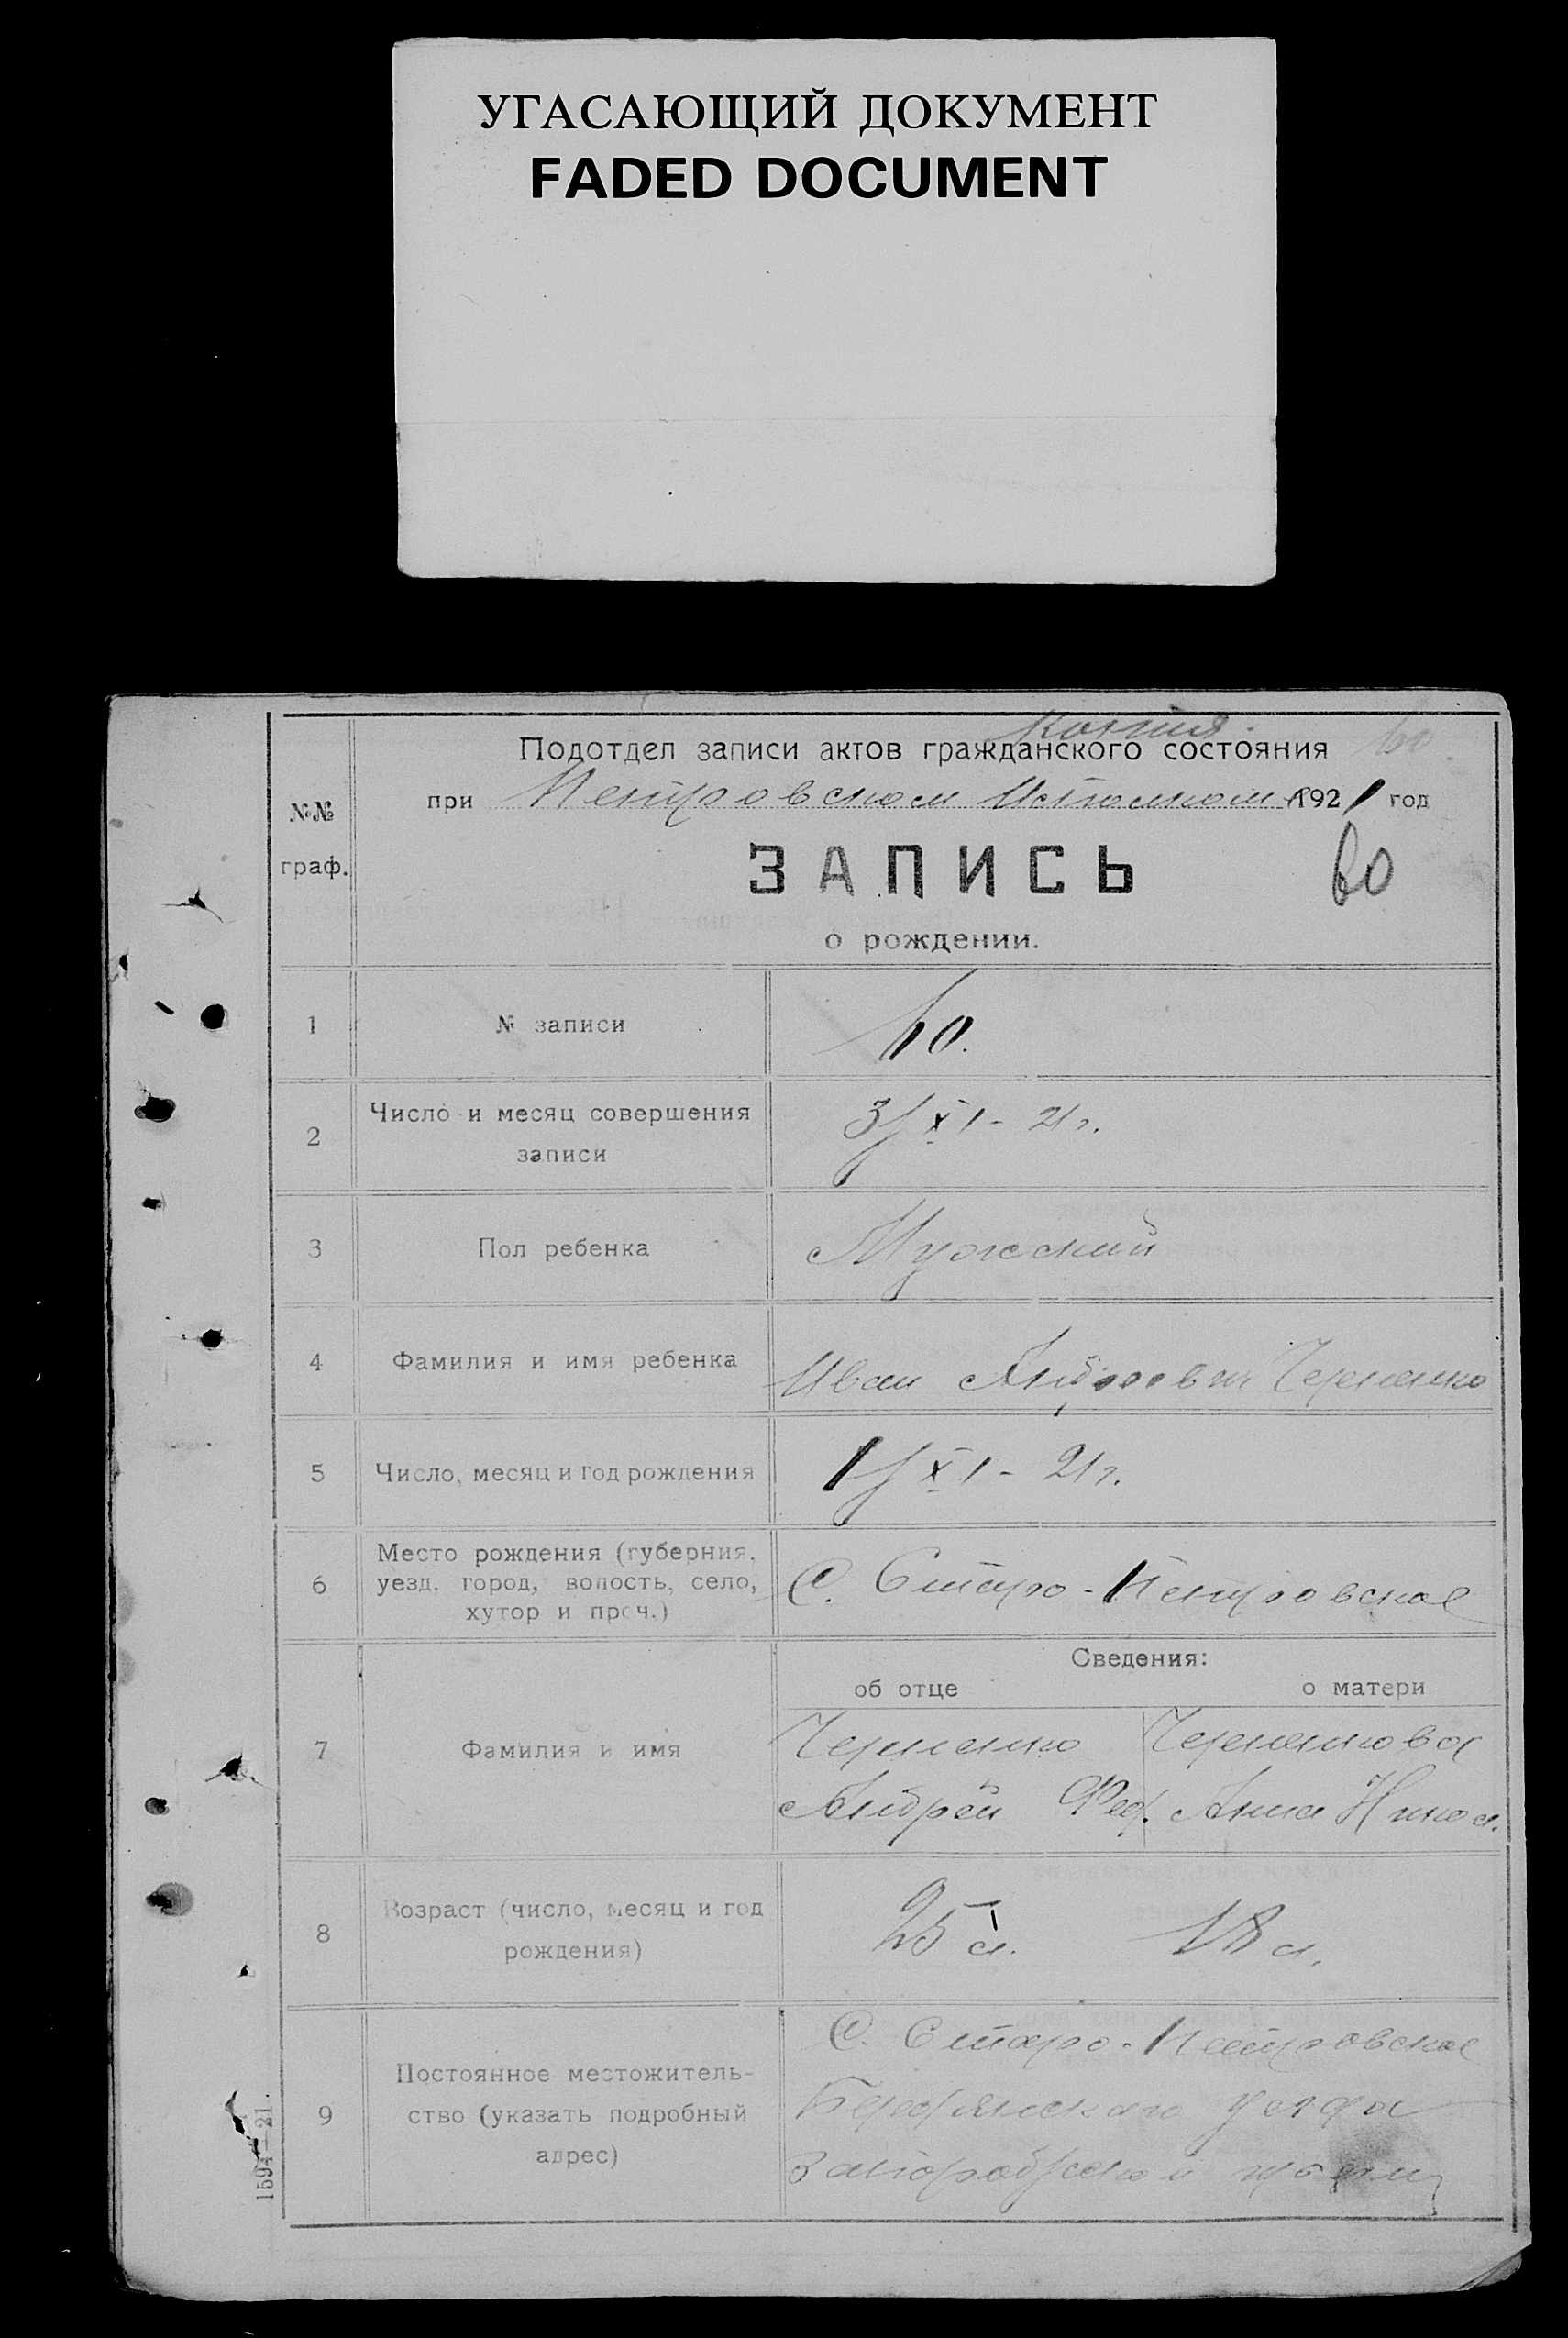 УГАСАЮЩИЙ ДОКУМЕНТ
FADED DOCUMENT
Копия. 60
Подотдел записи актов гражданского состояния
при Петровском Исполкоме 1921 год
№№
граф.
ЗАПИСЬ
60
о рождении.
1 № записи 60.
2 Число и месяц совершения
записи
3/XI - 21 г.
3 Пол ребенка Мужский
4 Фамилия и имя ребенка Иван Андреевич Черненко
5 Число, месяц и год рождения 1/XI - 21 г.
6 Место рождения (губерния,
уезд, город, волость, село,
хутор и проч.)
С. Старо-Петровское
Сведения:
об отце о матери
7 Фамилия и имя
Черненко Черненкова
Андрей Фед. Анна Никол.
8 Возраст (число, месяц и год
рождения)
25 л. 18 л.
9 Постоянное местожитель-
ство (указать подробный
адрес)
С. Старо-Петровское
Бердянскаго уезда
Запорожской губернии
1594—21.